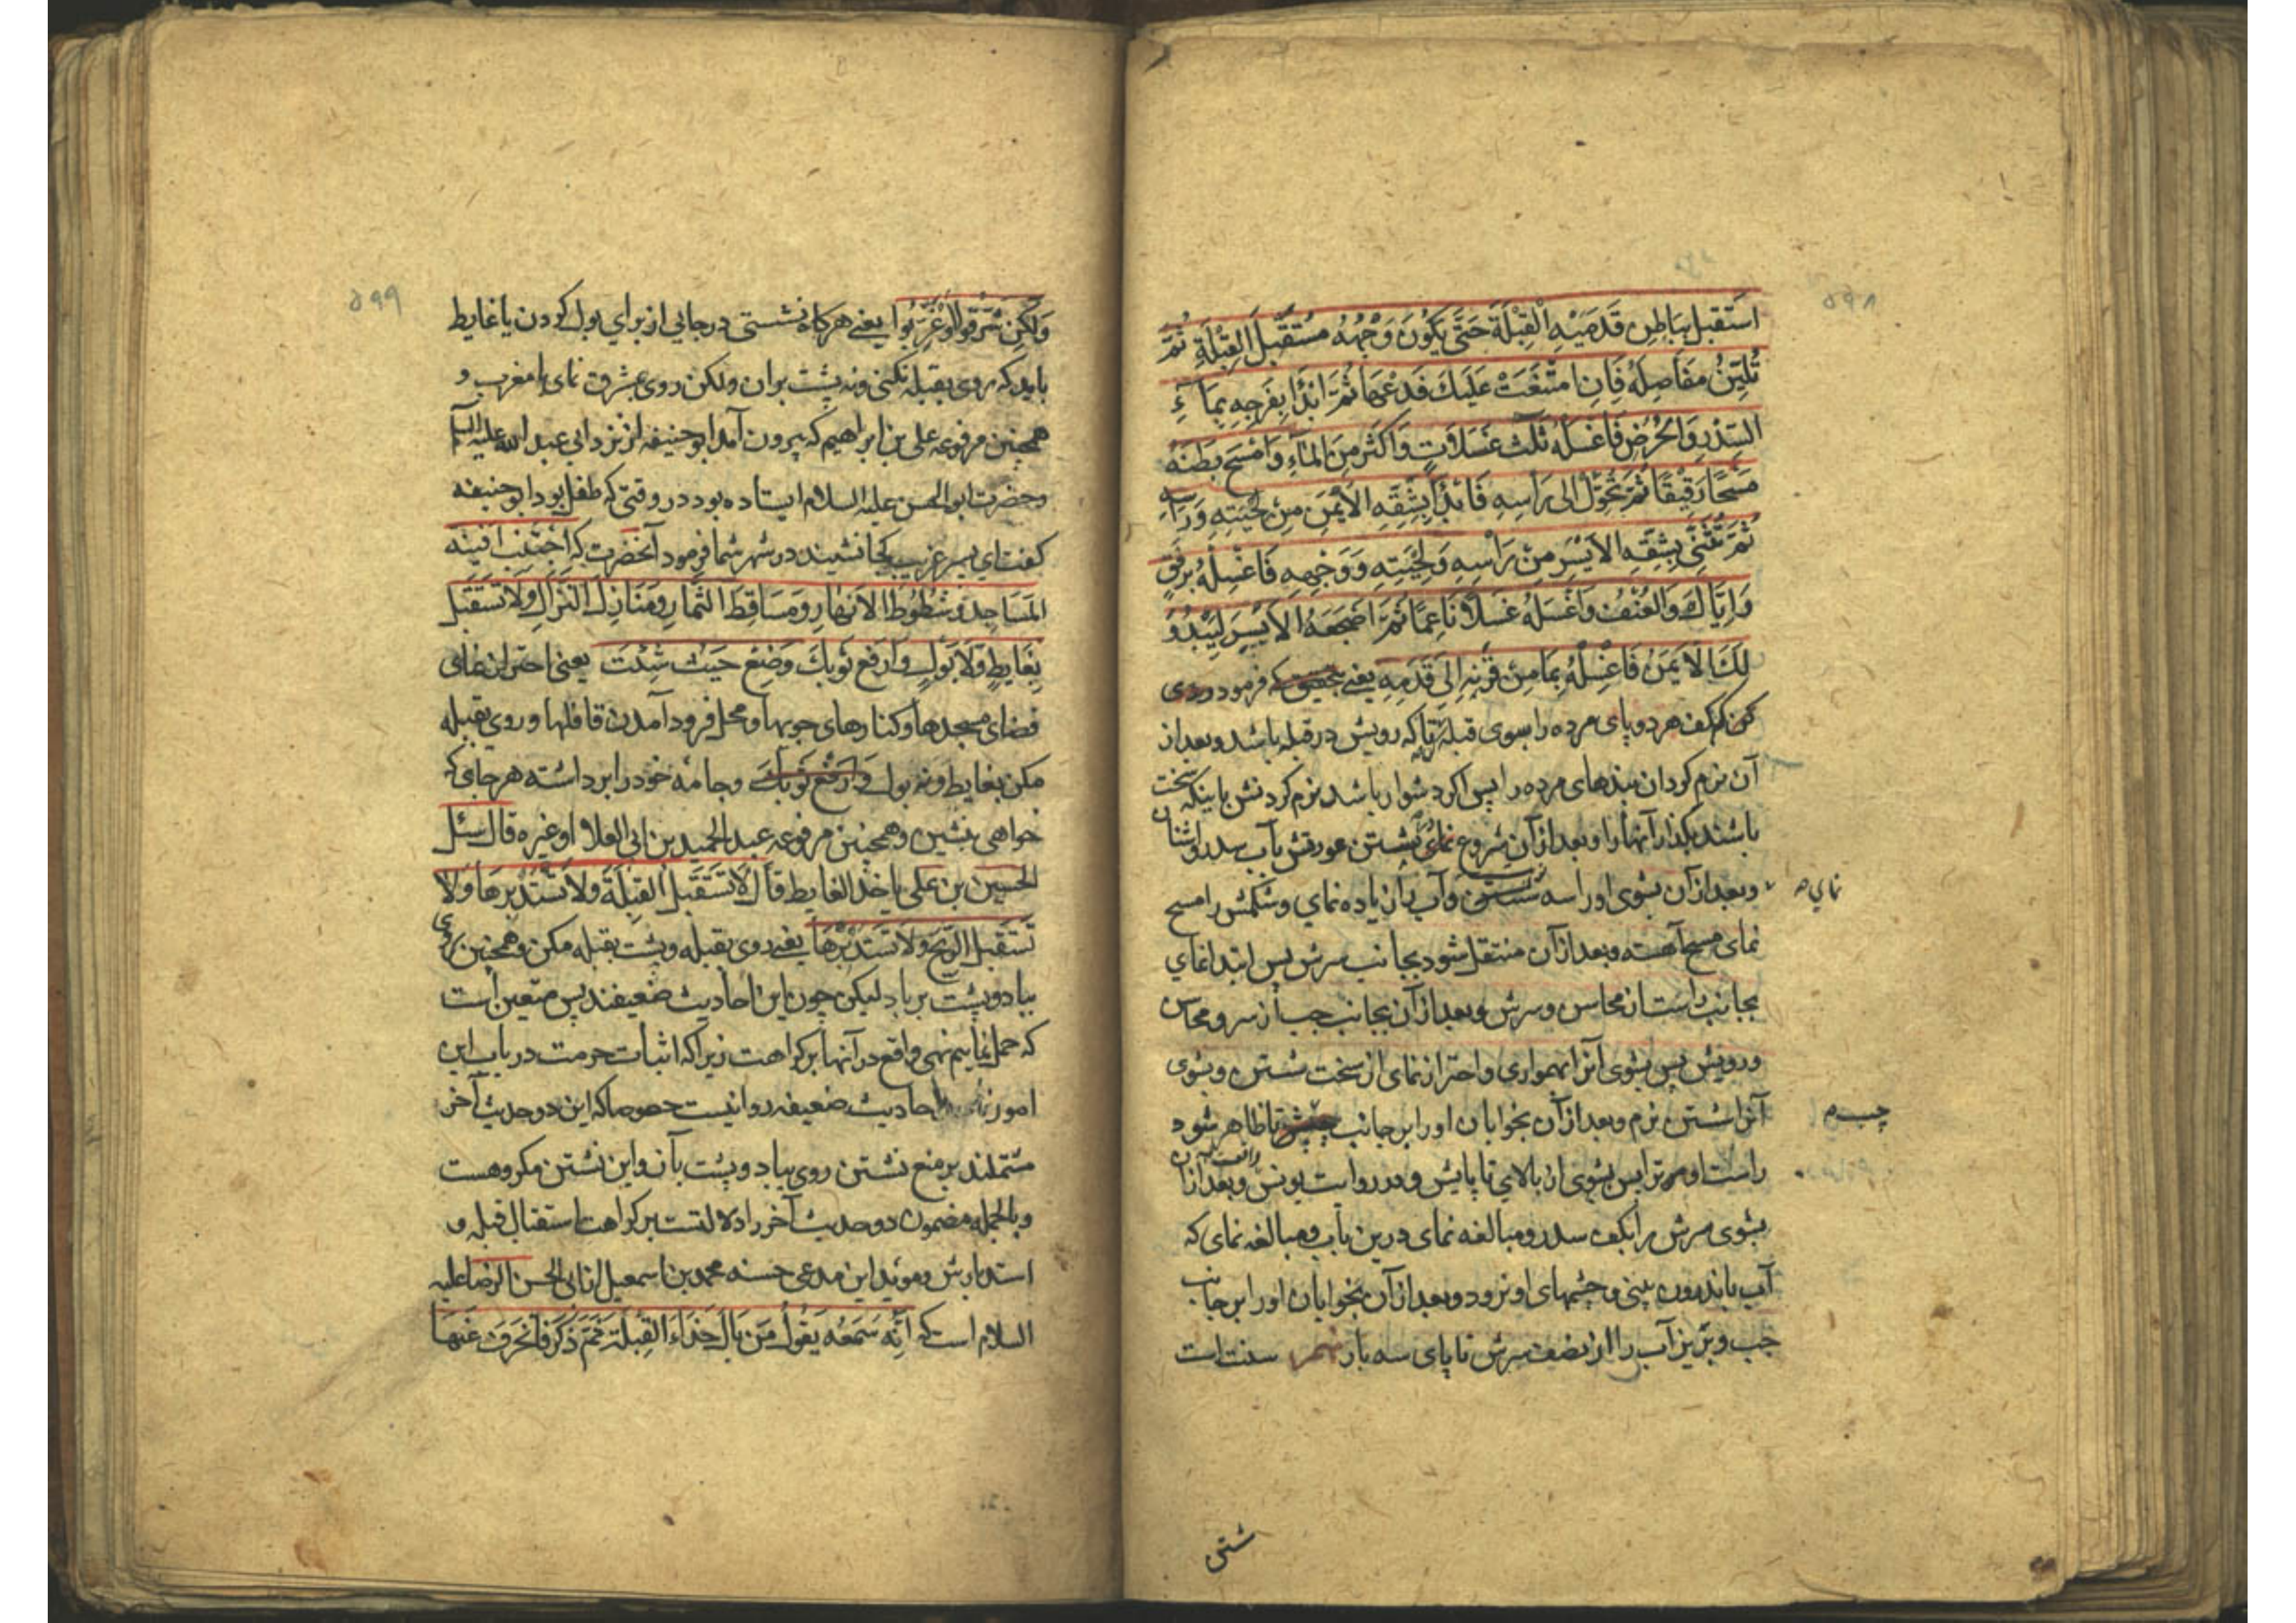 ۵۹۸
اسْتَقبل بِبَاطِنِ قَدَمَیْهِ الْقِبْلَةَ حَتَّی یَکُونَ وَجْهُهُ مُسْتَقْبِلَ الْقِبْلَةِ ثُمَّ
تُلَیِّنُ مَفَاصِلَهُ فَاِنِ امْتَنَعَتْ عَلَیْكَ فَدَعْهَا ثُمَّ ابْدَأْ بِفَرجِهِ بِمَآءِ
السِّدْرِ وَالْحُرُضِ فَاغْسِلْهُ ثَلٰثَ غَسَلَاتٍ وَاَکْثِرْ مِنَ الْمَاءِ وَامْسَحْ بَطْنَهُ
مَسْحًا رَقِیْقًا ثُمَّ تَحَوَّلْ اِلی رَأسِهِ فَابْدَأْ بِشِقِّهِ الْاَیْمَنِ مِنْ لِحْیَتِهِ وَرَاسِهِ
ثُمَّ تُثَنِّی بِشِقِّهِ الاَیْسَرِ مِنْ رَاْسِهِ وَلِحْیَتِهِ وَوَجْهِهِ فَاغْسِلْهُ بِرِفْقٍ
وَاِیَّاكَ وَالْعُنْفَ وَاغْسِلْهُ غَسْلًا نَاعِمًا ثُمَّ اَضْجِعْهُ الْاَیْسَرِ لِیَبْدُوَ
لَكَ الْاَیمَنُ فَاغْسِلْهُ بِمَا مِنْ قَرْنِهِ اِلَی قَدَمِهِ یعنی که فرمود روی
کن کف هر دو پای مرده را بسوی قبله تا که رویش در قبله باشد و بعد از
آن نرم کردان بندهای مرده را پس اکر دشوار باشد نرم کردنش باینکه سخت
باشند بکذار آنها را و بعد از آن شروع نمای بشستن عورتش بآب سدر و اشنان
و بعد از آن بشوی او را سه شستن و آب را زیاده نمای و شکمش را مسح
نمای م
نمای مسح آهسته و بعد از آن منتقل شو بجانب سرش پس ابتدا نمای
بجانب راست از محاسن و سرش و بعد از آن بجانب چپ از سر و محاسن
و رویش پس بشوی آنرا بهمواری و احتراز نمای از سخت شستن و بشوی
آنرا شستن نرم و بعد از آن بخوابان او را بر جانب تا ظاهر شود
چپ م
راست او مر ترا پس بشوی از بالای تا پایش و در روایت یونس و بعد از آن
بشوی سرش را بکف سدر و مبالغه نمای درین باب و مبالغه نمای که
آب باندرون بینی و چشمهای او نرود و بعد از آن بخوابان او را بر جانب
چپ و بریز آب را از نصف سرش تا پای سه بار سنت است
شتی
۵۹۹
وَلَکِنْ شَرِّقُوا اَوْ غَرِّبُوا یعنی هرکاه نشستی در جایی از برای بول کردن یا غایط
باید که روی بقبله نکنی و نه پشت بران ولکن روی بمشرق نمای یا مغرب و
همچنین مرفوعه علی بن ابراهیم که بیرون آمد ابوحنیفه از نزد ابی عبد الله علیه السلام
و حضرت ابو الحسن علیه السلام ایستاده بود در وقتی که طفل بود ابوحنیفه
کفت ای پسر غریب کجا نشیند در شهر شما فرمود آنحضرت که اجْتَنِبْ اَفْنِیَةَ
المَسَاجِدِ وَشُطُوطَ الْاَنهَارِ وَمَسَاقِطَ الثِّمَارِ وَمَنَازِلَ النُّزَّالِ وَلَا تَسْتَقْبِلْ
بِغَایِطٍ وَلَا بَوْلٍ وَارْفَعْ ثَوْبَكَ وَضَعْ حَیْثُ شِئْتَ یعنی احتراز نمای
فضای مسجدها و کنارهای جویها و محل فرود آمدن قافلها و روی بقبله
مکن بغایط و نه بول وَارْفَعْ ثَوْبَكَ و جامه خود را برداشته هر جای که
خواهی بنشین و همچنین مرفوعه عبد الحمید بن ابی العلا او غیره قال سئل
الحسین بن علی ما حَدُّ الغایط قالَ لَا تَسْتَقْبِلِ القِبْلَةَ وَلَا تَسْتَدْبِرْهَا وَلَا
تَسْتَقْبِلِ الرِّیحَ وَلَا تَسْتَدْبِرْهَا یعنی روی بقبله و پشت بقبله مکن و همچنین روی
بباد و پشت بر باد لیکن چون این احادیث ضعیفند پس متعین است
که حمل نماییم نهی واقع در آنها بر کراهت زیرا که اثبات حرمت در باب این
امور احادیث ضعیفه روا نیست خصوصا که این دو حدیث آخر
مشتملند بر منع نشستن روی بباد و پشت بآن و این نشستن مکروهست
و بالجمله مضمون دو حدیث آخر را دلالتست بر کراهت استقبال قبله و
استدبارش و مؤید این مدعی حسنه محمد بن اسمعیل از ابی الحسن الرضا علیه
السلام است که اَنَّهُ سَمِعَهُ یَقُولُ مَن بَالَ حِذَاءَ القِبْلَةِ ثُمَّ ذَکَرَ فَانْحَرَفَ عَنهَا